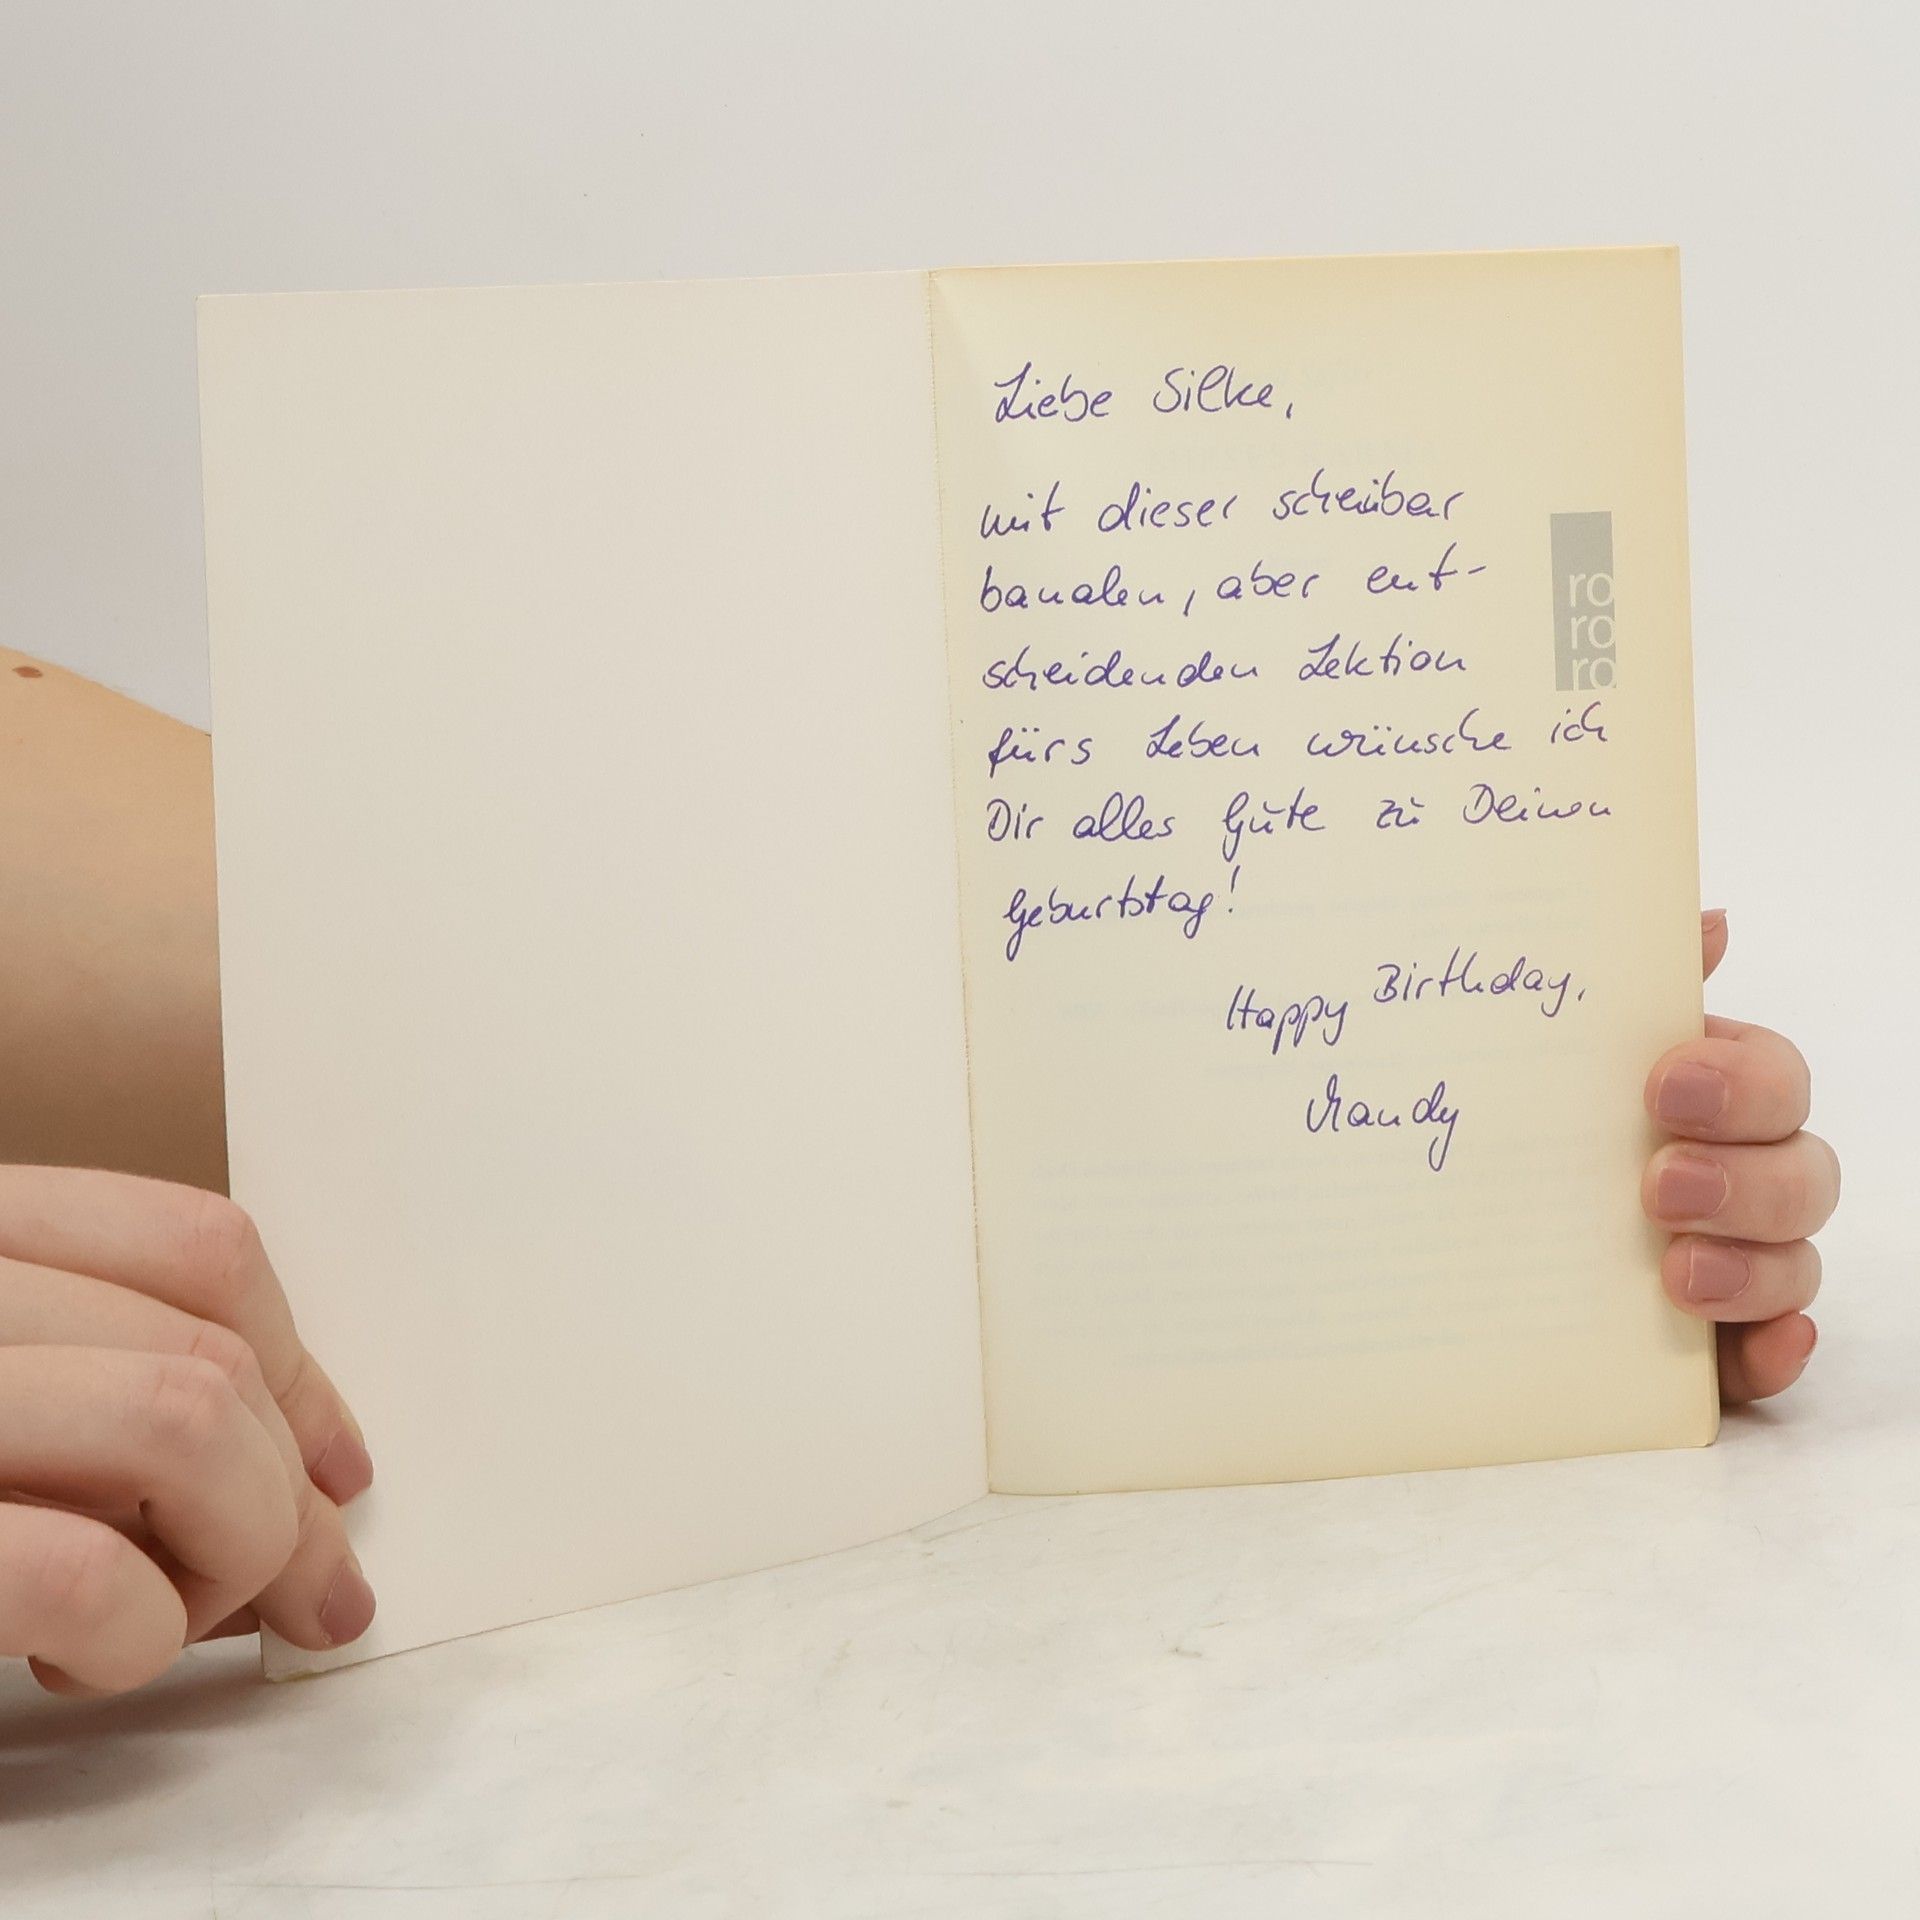 Liebe Silke,
mit dieser scheinbar
banalen, aber ent-
scheidenden Lektion
fürs Leben wünsche ich
Dir alles Gute zu Deinen
Geburtstag!
Happy Birthday,
Mandy
ro
ro
ro